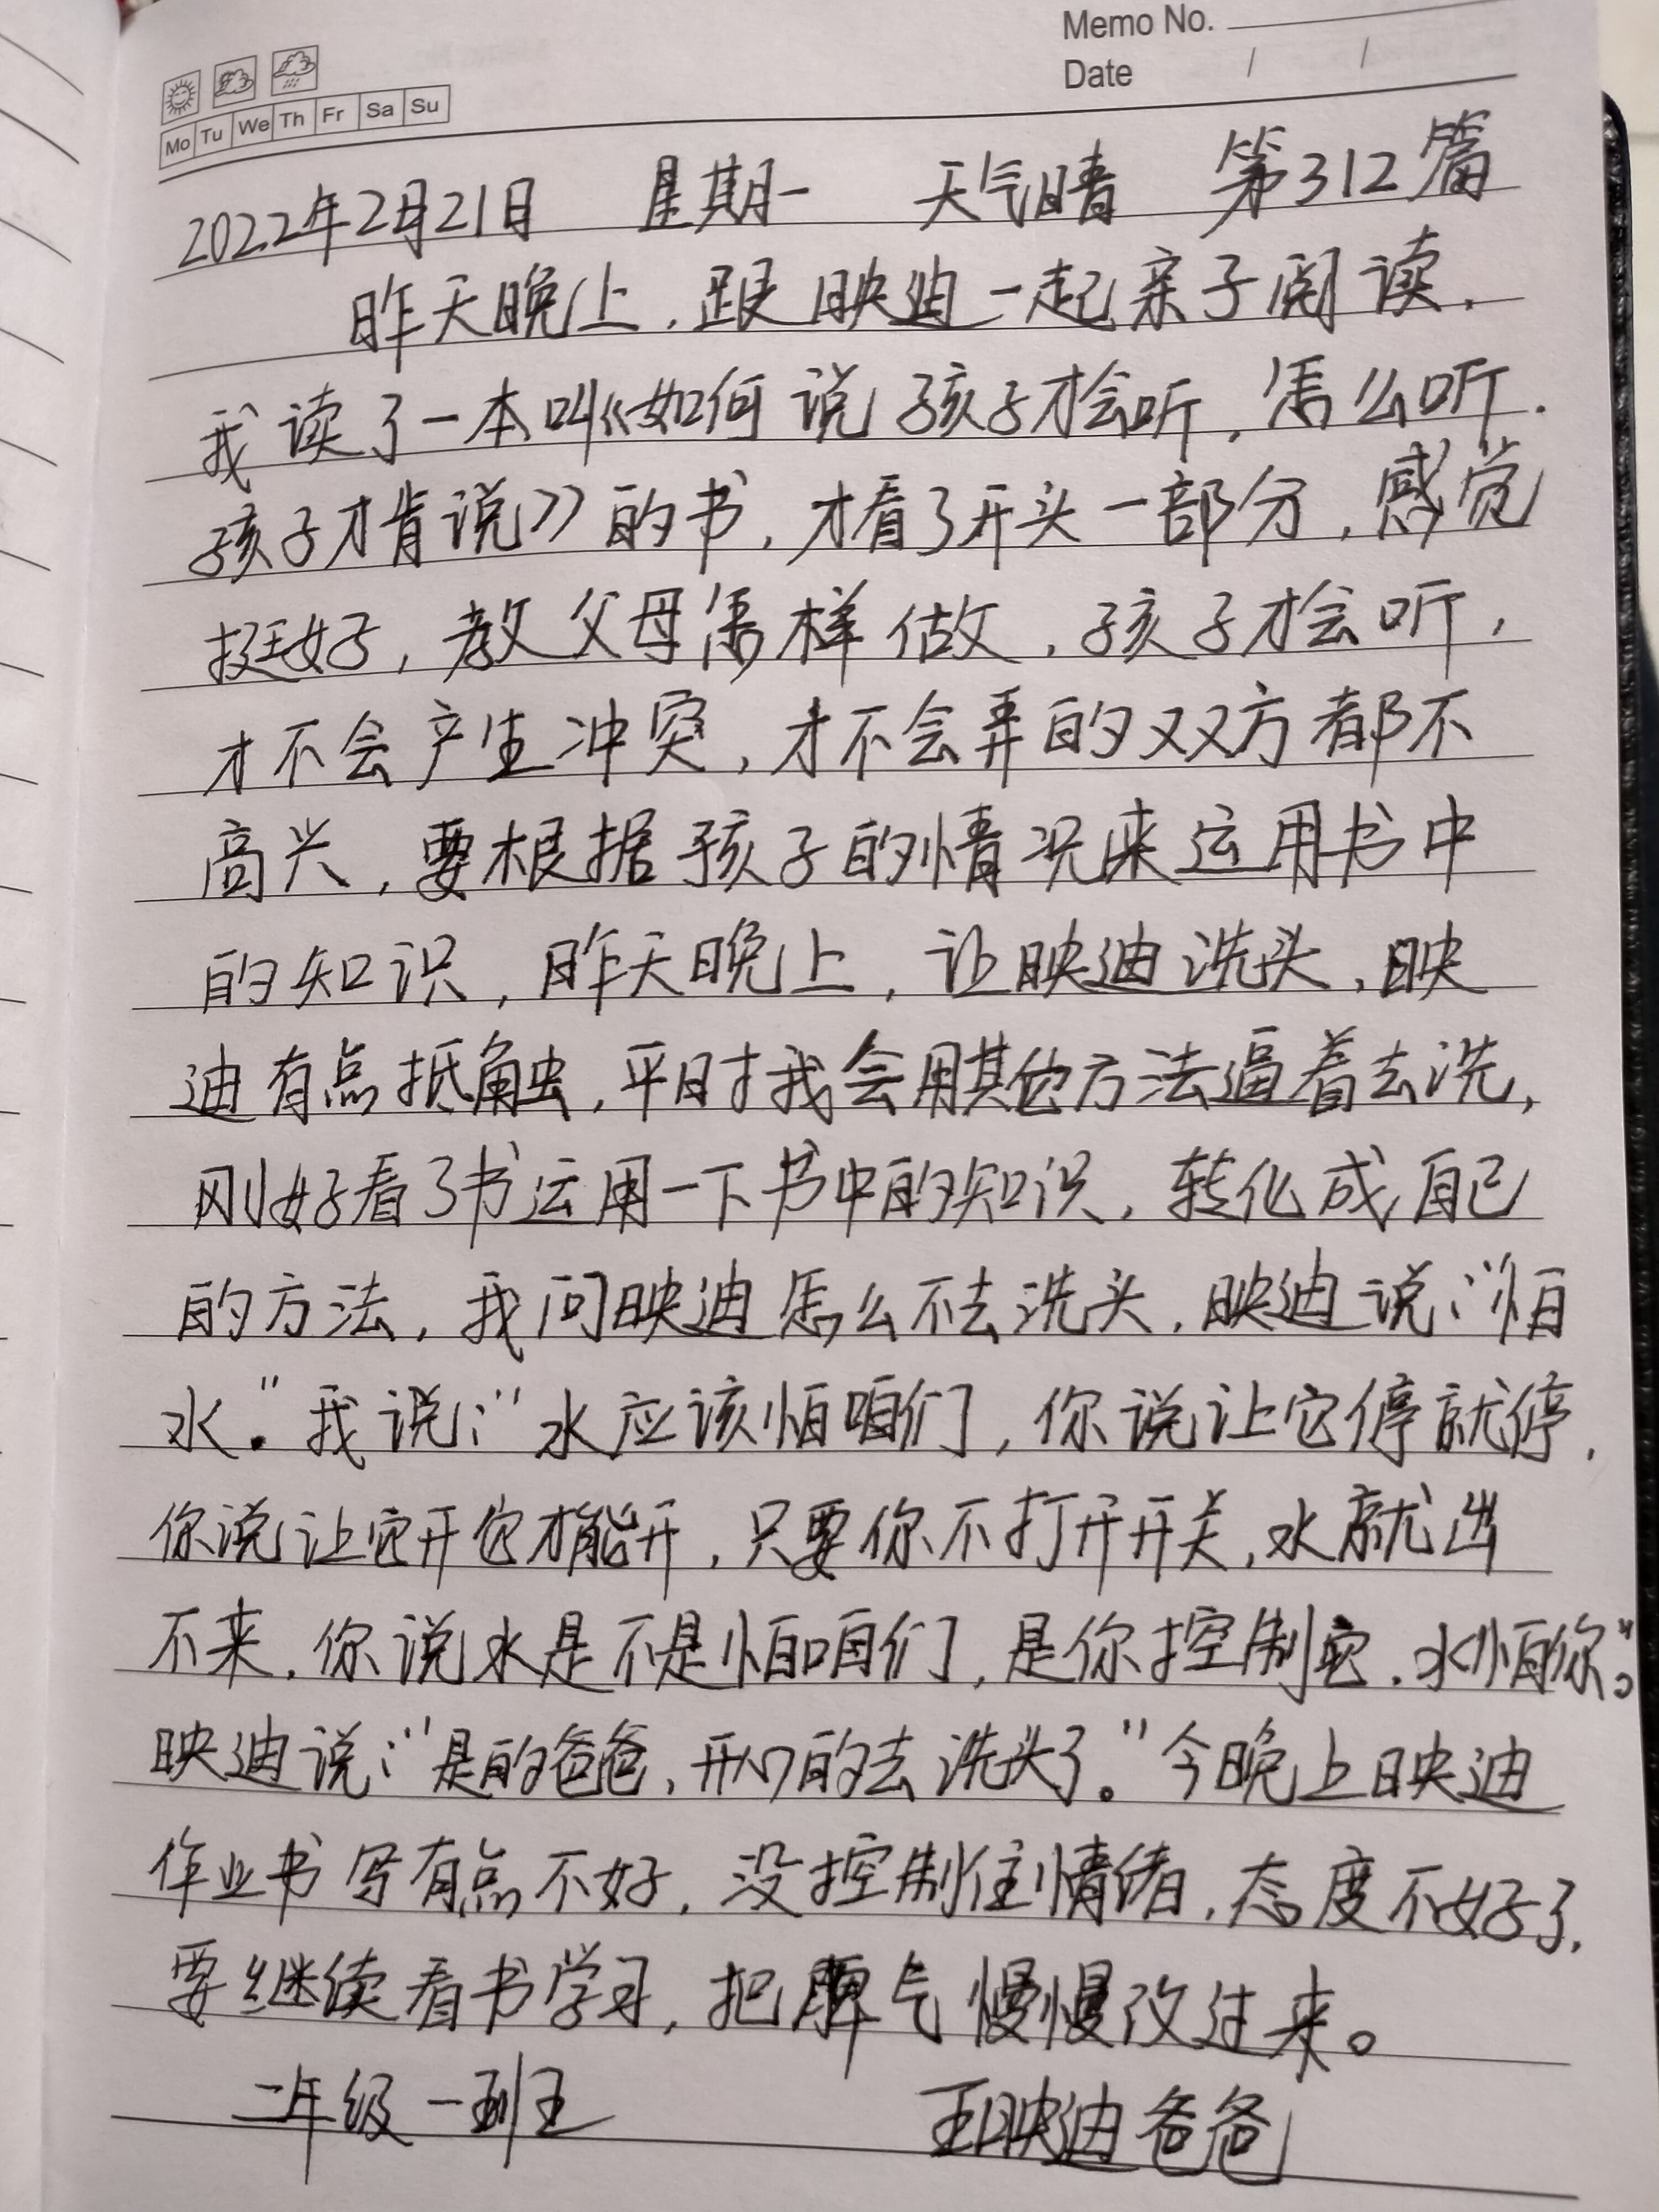 Memo No.
Date / /
Mo Tu We Th Fr Sa Su
2022年2月21日 星期一 天气晴 第312篇
昨天晚上,跟映迪一起亲子阅读,
我读了一本叫《如何说孩子才会听,怎么听.
孩子才肯说》的书,才看了开头一部分,感觉
挺好,教父母怎样做,孩子才会听,
才不会产生冲突,才不会弄的双方都不
高兴,要根据孩子的情况来运用书中
的知识,昨天晚上,让映迪洗头,映
迪有点抵触,平时我会用其他方法逼着去洗,
刚好看了书运用一下书中的知识,转化成自己
的方法,我问映迪怎么不去洗头,映迪说:“怕
水。”我说:“水应该怕咱们,你说让它停就停,
你说让它开它才能开,只要你不打开开关,水就出
不来,你说水是不是怕咱们,是你控制它,水怕你。”
映迪说:“是的爸爸,开心的去洗头了。”今晚上映迪
作业书写有点不好,没控制住情绪,态度不好了,
要继续看书学习,把脾气慢慢改过来。
二年级一班王 王映迪爸爸